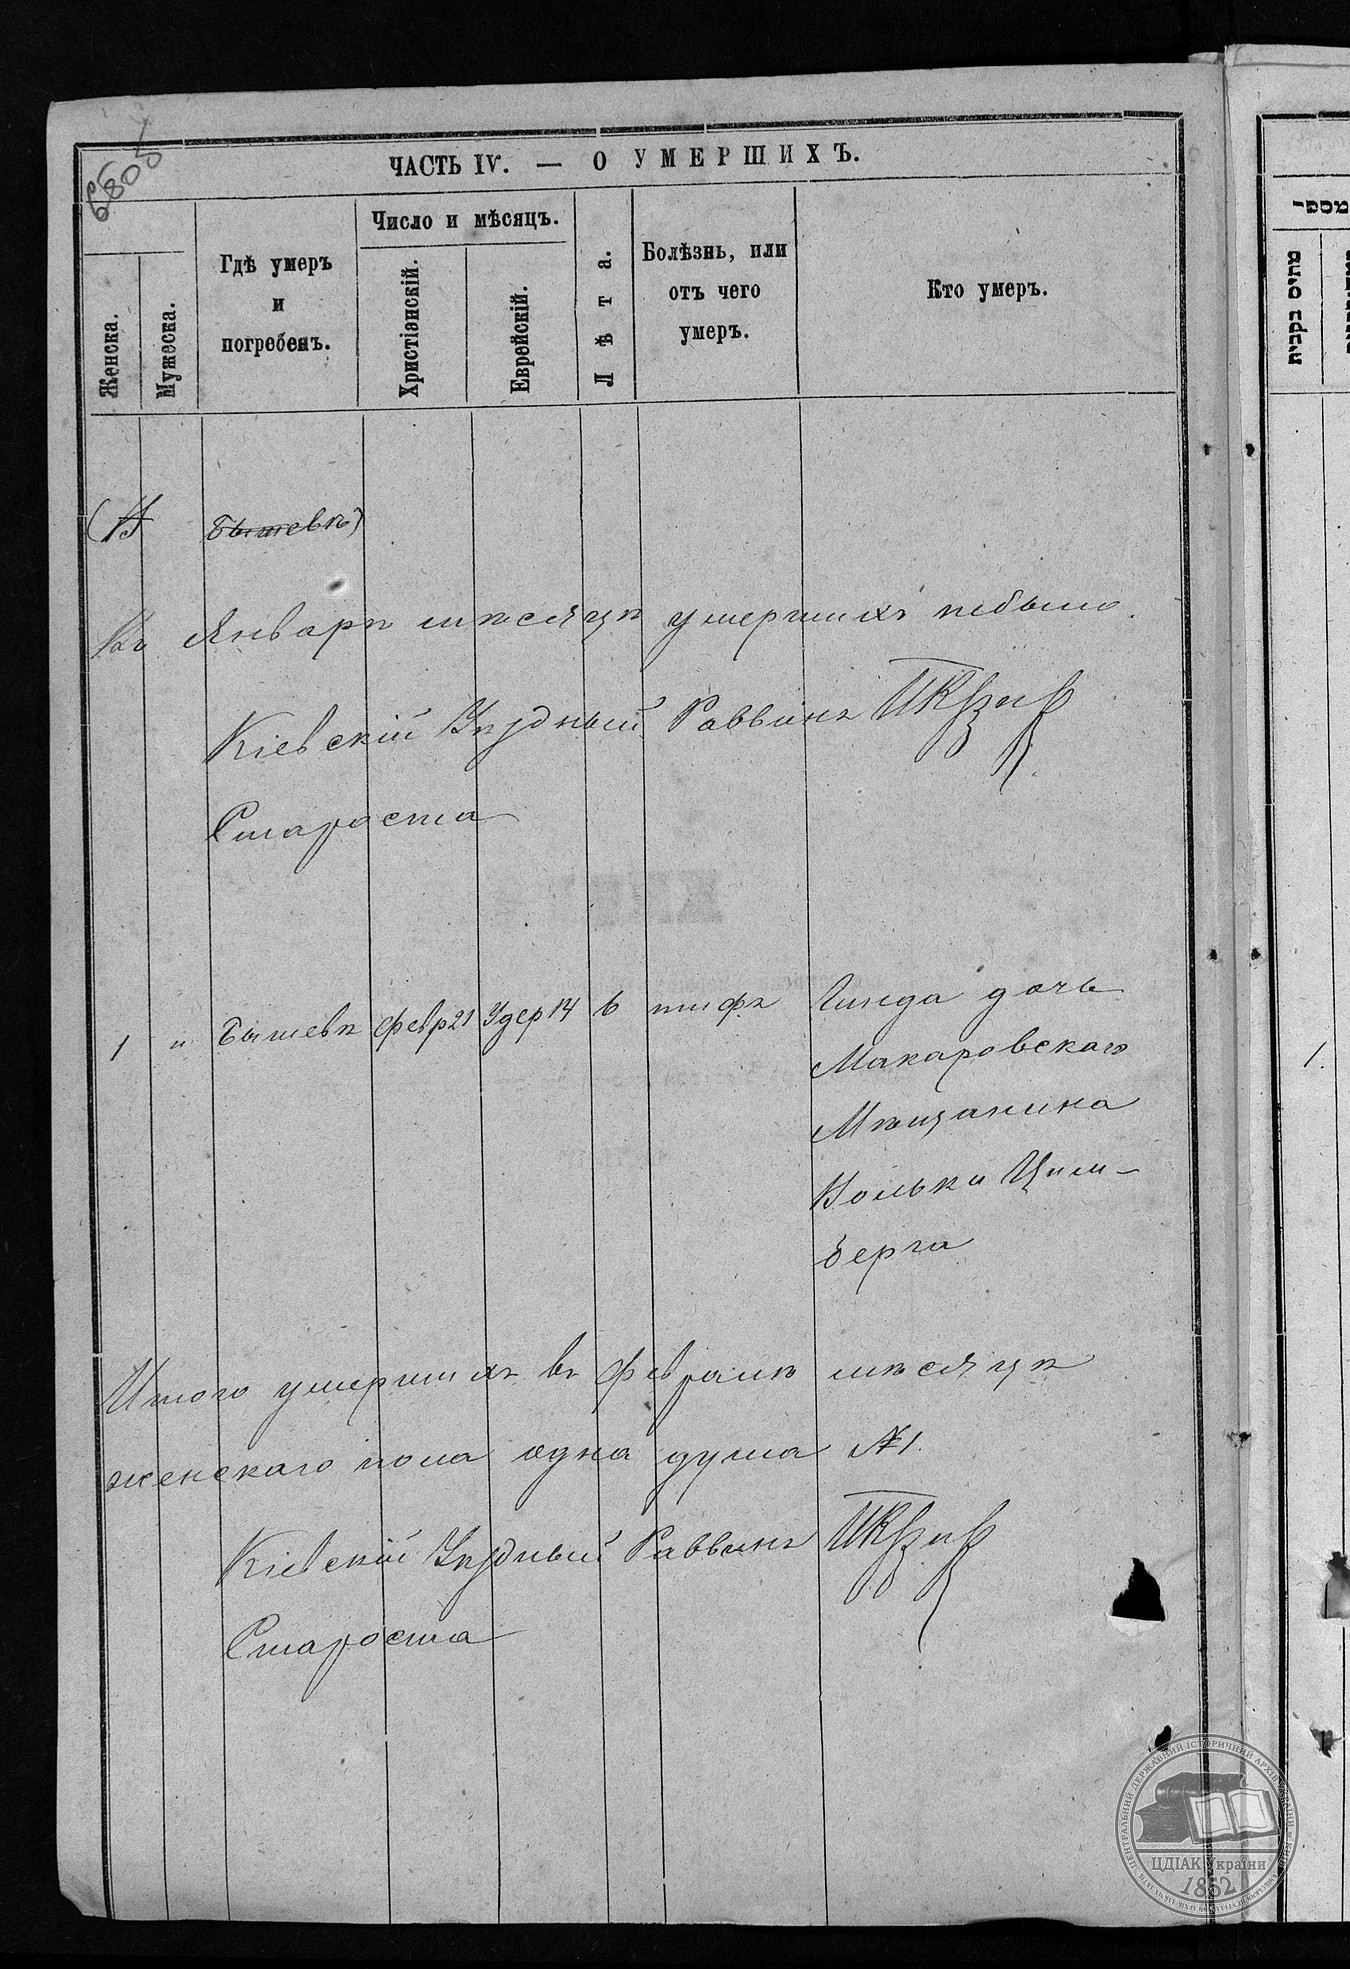 ЧАСТЬ IV. — О УМЕРШИХЪ.
Женска.
Мужеска.
Гдѣ умеръ
и
погребенъ.
Число и мѣсяцъ.
Христіанскій.
Еврейскій.
Лѣта.
Болѣзнь, или
отъ чего
умеръ.
Кто умеръ.
Бышевѣ)
Въ Январѣ мѣсяцѣ умершихъ небыло.
Кіевскій Уѣздный Раввинъ
Староста
1 " Бышевѣ Февр 21 Удер 14 6 тифъ Гинда дочь
Макаровскаго
Мѣщанина
Волька Цим-
берга
Итого умершихъ въ Февралѣ мѣсяцѣ
женскаго пола одна душа №1.
Кіевскій Уѣздный Раввинъ
Староста
מספר
1.
ЦЕНТРАЛЬНИЙ ДЕРЖАВНИЙ ІСТОРИЧНИЙ АРХІВ УКРАЇНИ, М. КИЇВ
ЦДІАК України
1852